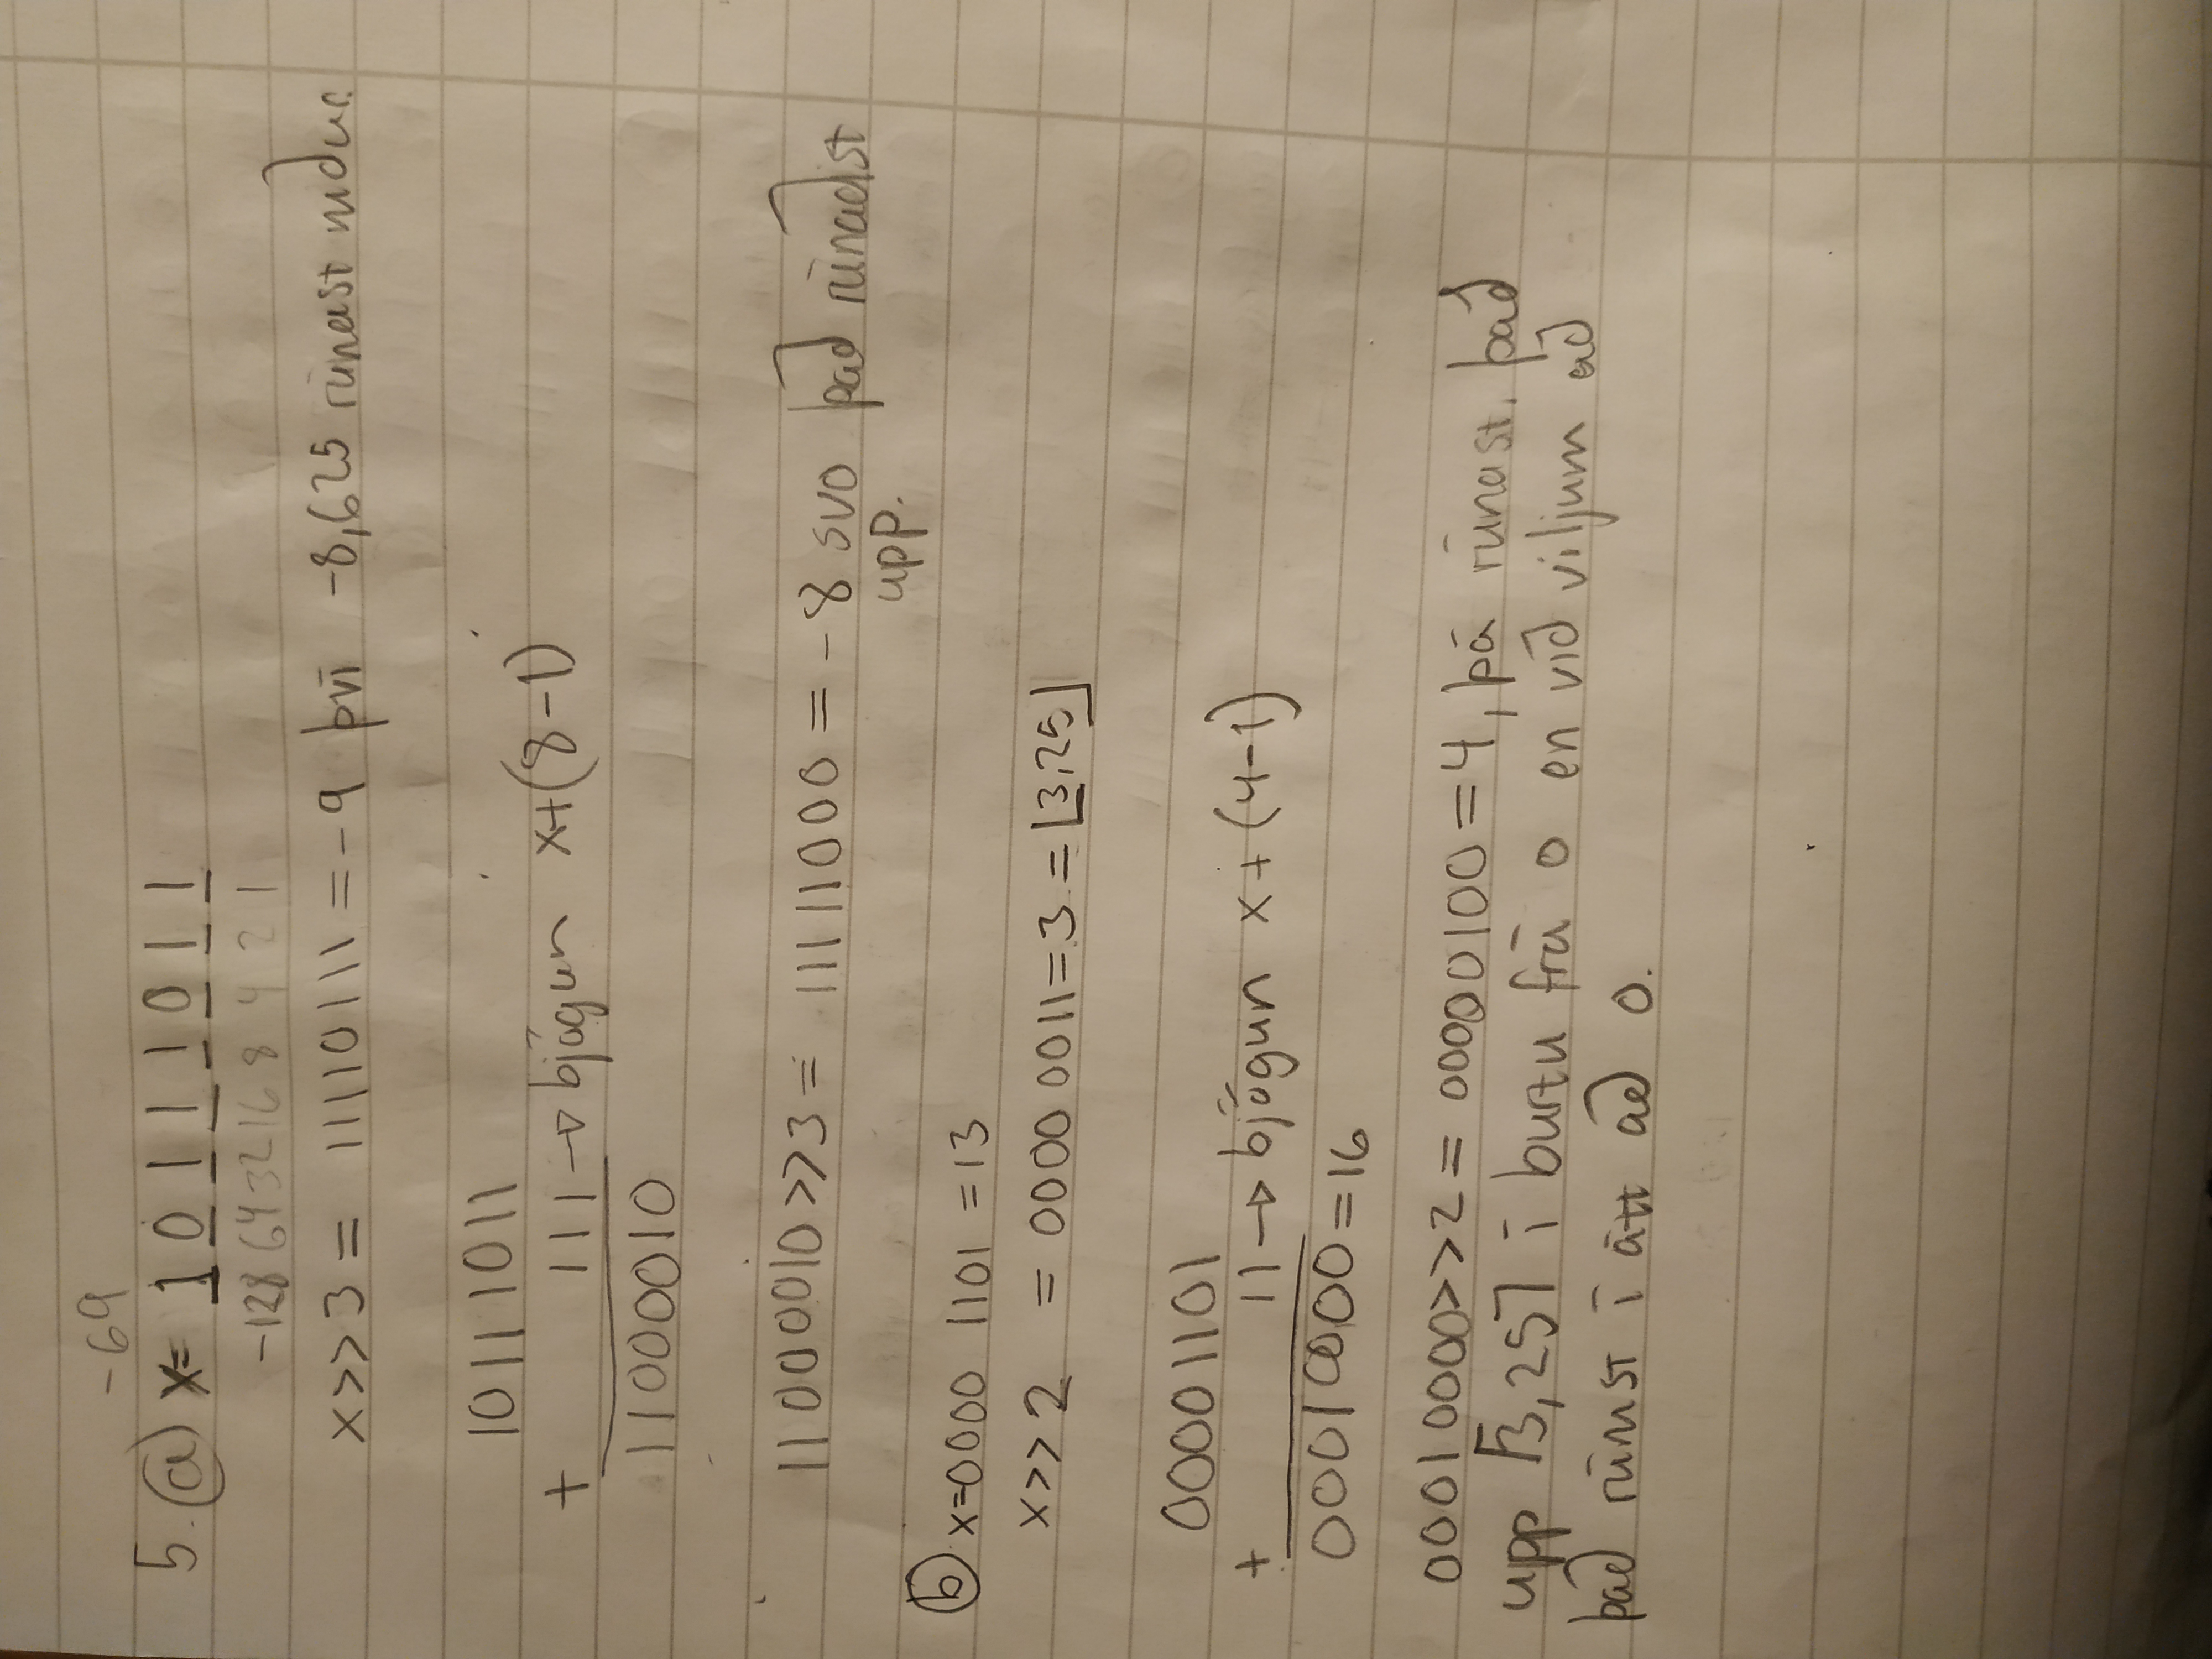 -69
5. a) x= 1 0 1 1 1 0 1 1
-128 64 32 16 8 4 2 1
x>>3 = 11110111 = -9 því -8,625 rúnast niður.
10111011
+ 111 → bjögun x+(8-1)
11000010
11000010>>3 = 11111000 = -8 svo það rúnaðist
upp.
b) x=0000 1101 =13
x>>2 = 0000 0011=3 = ⌊3,25⌋
00001101
+ 11 → bjögun x+(4-1)
00010000=16
00010000>>2 = 00000100=4, þá rúnast það
upp ⌈3,25⌉ í burtu frá 0 en við viljum að
það rúnist í átt að 0.